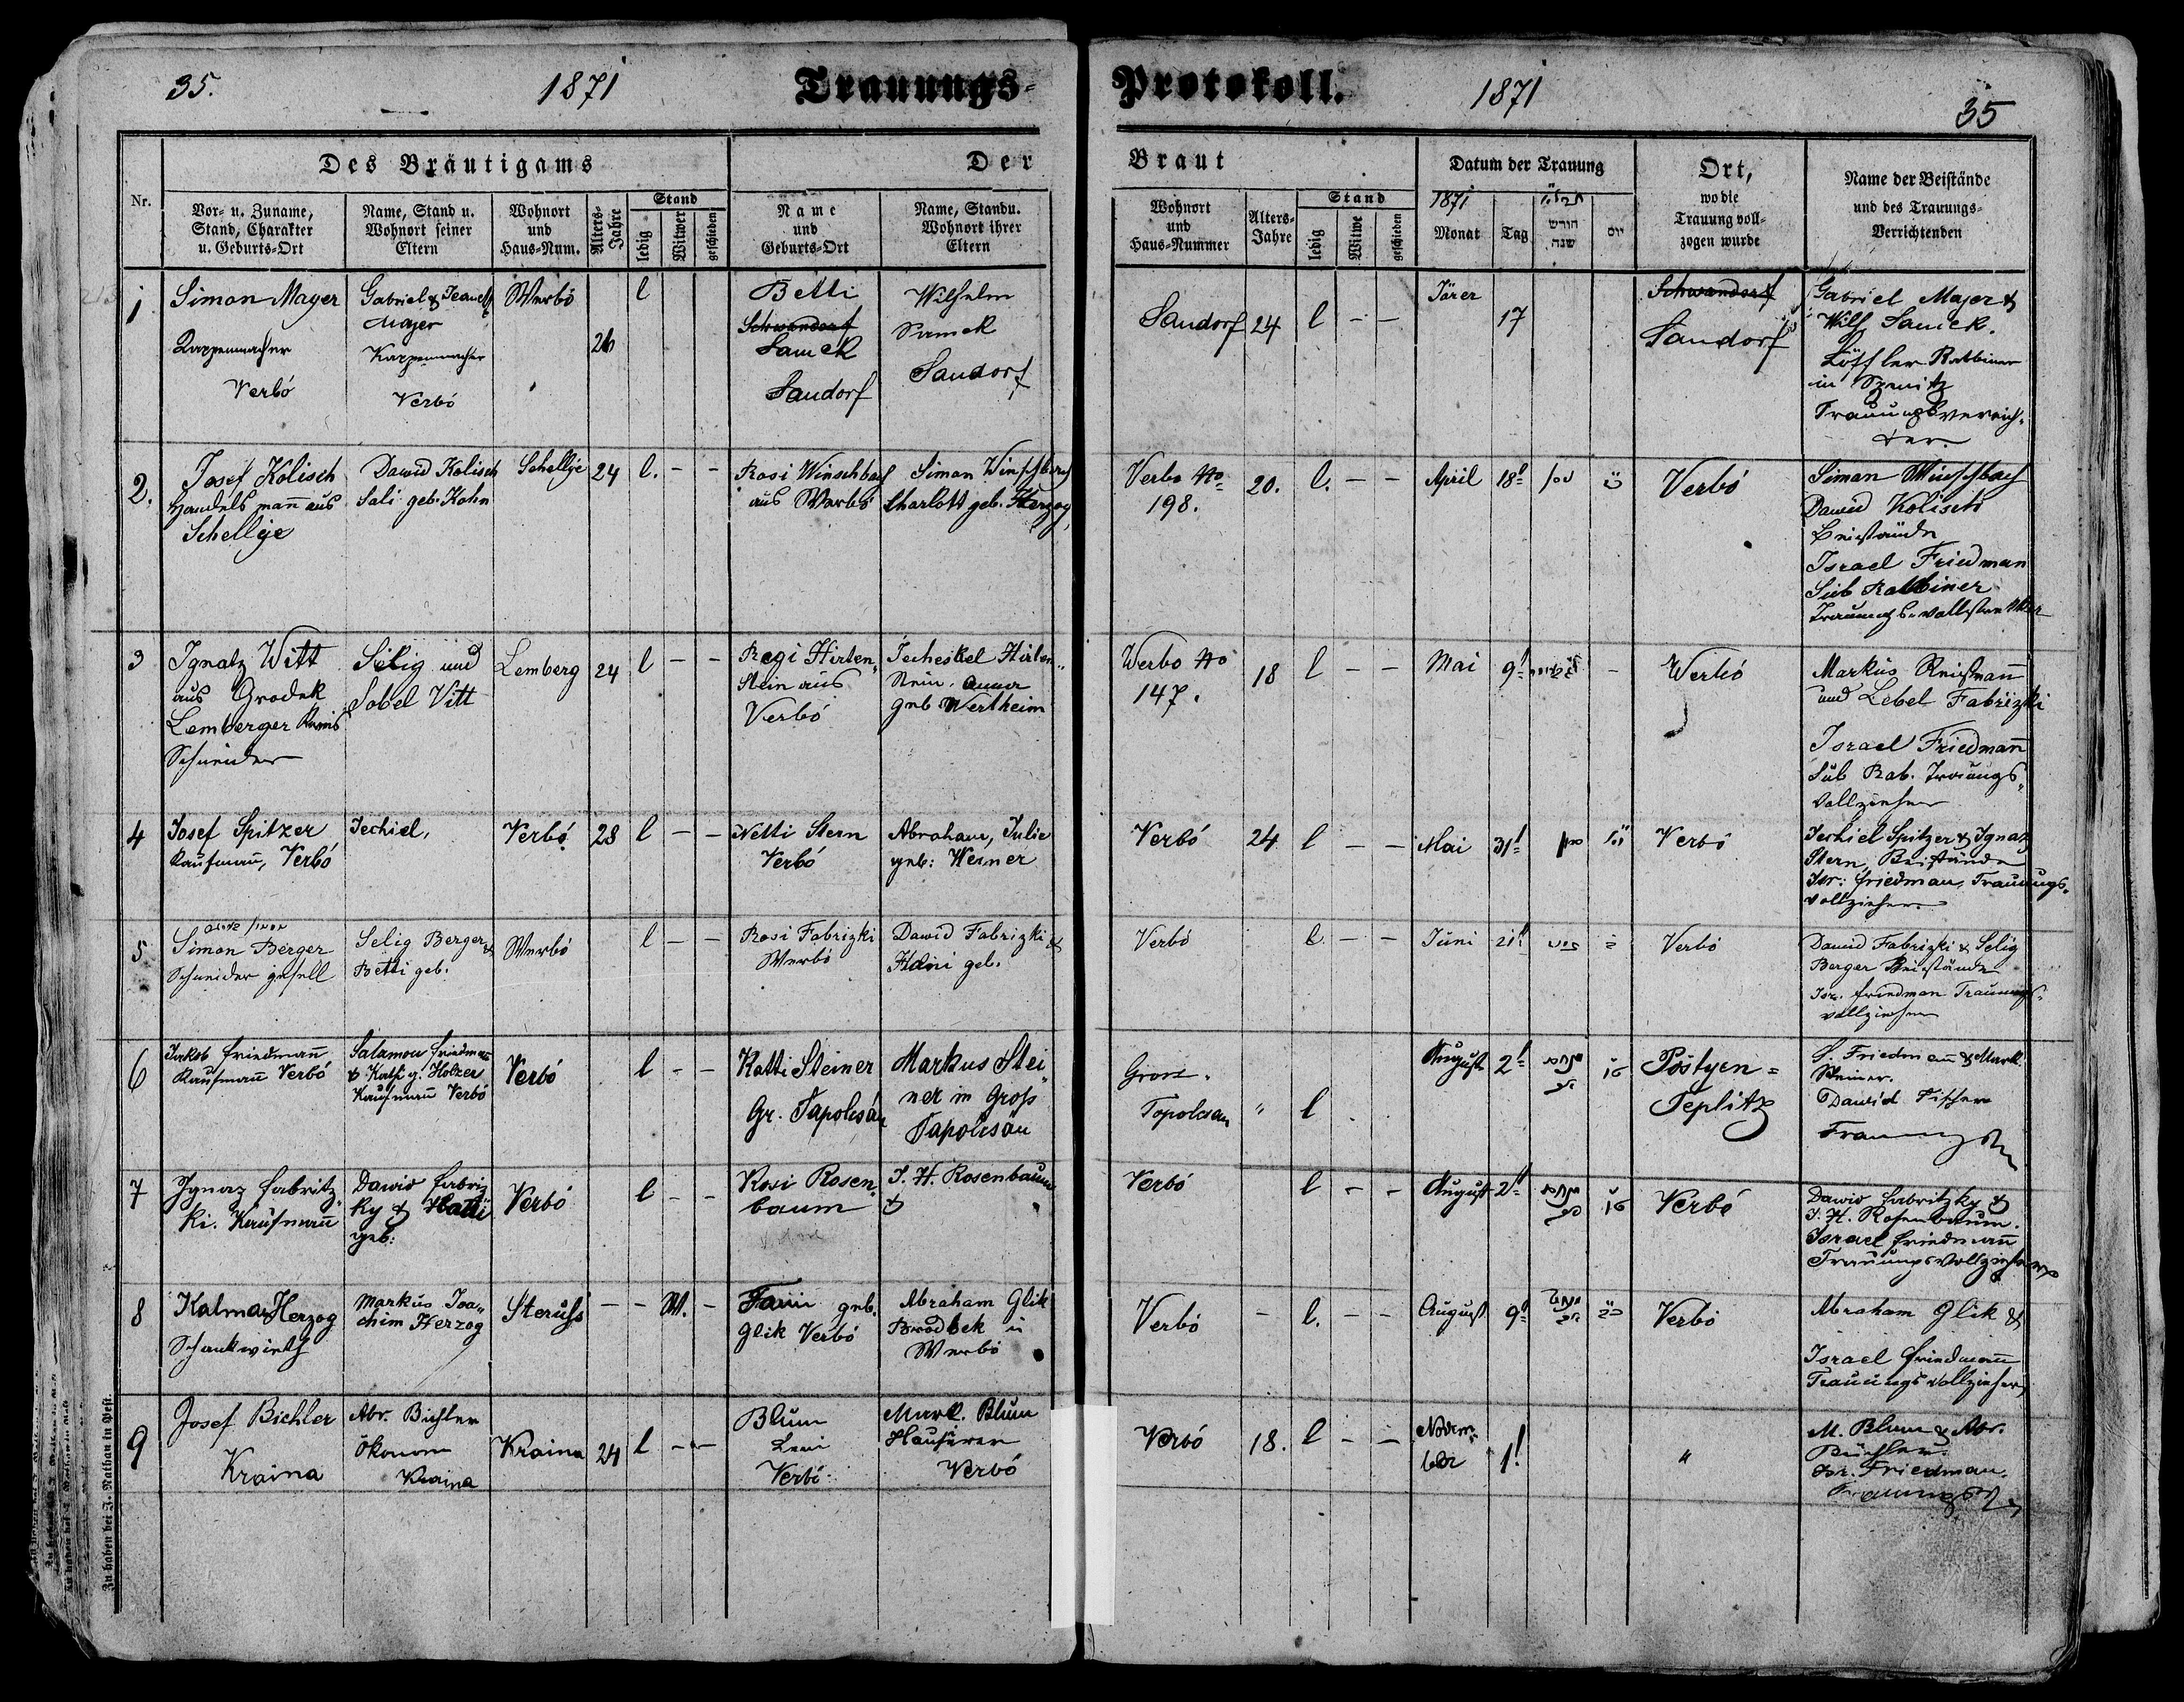 35. 1871 Trauungs-Protokoll. 1871 35
Des Bräutigams
Der Braut
Datum der Trauung
Ort, wo die Trauung vollzogen wurde
Name der Beistände und des Trauungs-Verrichtenden
Nr.
Vor- u. Zuname, Stand, Charakter u. Geburts-Ort
Name, Stand u. Wohnort seiner Eltern
Wohnort und Haus-Num.
Alters-Jahre
Stand
ledig
Witwer
geschieden
Name und Geburts-Ort
Name, Stand u. Wohnort ihrer Eltern
Wohnort und Haus-Nummer
Alters-Jahre
Stand
ledig
Witwe
geschieden
1871
Monat
Tag
חודש
שנה
יום
1
Simon Mayer
Kappenmacher
Verbó
Gabriel &
Mayer
Kappenmacher
Verbó
Werbó
26
l
Betti
Schwandorf
Samek
Sandorf
Wilhelm
Samek
Sandorf
Sandorf
24
l - -
17
Schwandorf
Sandorf
Gabriel Majer &
Wilh Samek.
Löffler Rabbiner
in
2.
Josef Kolisch
Handelsmañ aus
Schellje
Dawid Kolisch
Sali geb. Kohn
Schellje
24
l. - -
Rosi Winschbach
aus Werbó
Simon Winschbach
Charlott geb. Herzog
Verbo No
198.
20.
l. - -
April
18t
ניסן
Verbó
Simon Winschbach
Dawid Kolisch
Beistände
Israel Friedman
Sub Rabbiner
3
Ignatz Witt
aus Grodek
Lemberger Kreis
Schneider
Selig und
Sobel Vitt
Lemberg
24
l - -
Regi Hirten„
stein aus
Verbó
Jecheskel Hirten„
stein. Anna
geb Wertheim
Werbo No
147.
18
l - -
Mai
9t
Werbó
Markus
und Lebel Fabrizki
Israel Friedmañ
Sub Rab. Trauungs„
Vollzieher
4
Josef Spitzer
Kaufmañ, Verbó
Jechiel,
Verbó
28
l - -
Netti Stern
Verbó
Abraham, Julie
geb: Weiner
Verbó
24
l - -
Mai
31t
סיון
Verbó
Jechiel Spitzer & Ignatz
Stern, Beistände
Isr: Friedman, Trauungs„
Vollzieher
5
Simon Berger
Schneider gesell
Selig Berger &
Betti geb.
Werbó
l - -
Rosi Fabrizki
Werbó
Dawid Fabrizki &
Hani geb.
Verbó
l - -
Juni
21t
Verbó
Dawid Fabrizki & Selig
Berger Beistände
Isr. Friedman Trauungs-
vollzieher
6
Jakob Friedmañ
Kaufmañ Verbó
Salamon Friedmañ
& Kathi g. Holzer
Kaufmañ Verbó
Verbó
l - -
Katti Steiner
Gr. Tapolcsán
Markus Stei„
ner in Gross
Tapolcsán
Gross.
Topolcsan
l
August
2t
Pöstyen=
Teplitz
S. Friedmañ & Mark.
Steiner.
Dawid Fischer
7
Ignaz Fabritz„
ki. Kaufmañ
Dawid Fabriz
ky & Kathi
geb:
Verbó
l - -
Rosi Rosen„
baum
J. H. Rosenbaum
&
Verbó
l - -
August
2t
Verbó
Dawid Fabritzky &
J. H. Rosenbaum.
Israel Friedmañ
Trauungsvollzieher
8
Kalman Herzog
Schankwirth
Markus Joa„
chim Herzog
Sterusz
- - W. -
Fani geb.
Glik Verbó
Abraham Glik
in
Werbó
Verbó
-
l. - -
August
9t
Verbó
Abraham Glik &
Israel Friedmañ
Trauungsvollzieher
9
Josef Bichler
Kraina
Abr. Bichler
Ökonom
Kraina
Kraina
24
l - -
Blum
Leni
Verbó
Mark. Blum
Hausirer
Verbó
Verbó
18.
l - -
Novem„
ber
1t
"
M. Blum & Abr.
Bichler.
Isr. Friedman.
Zu haben bei J. Nathan in Pest.